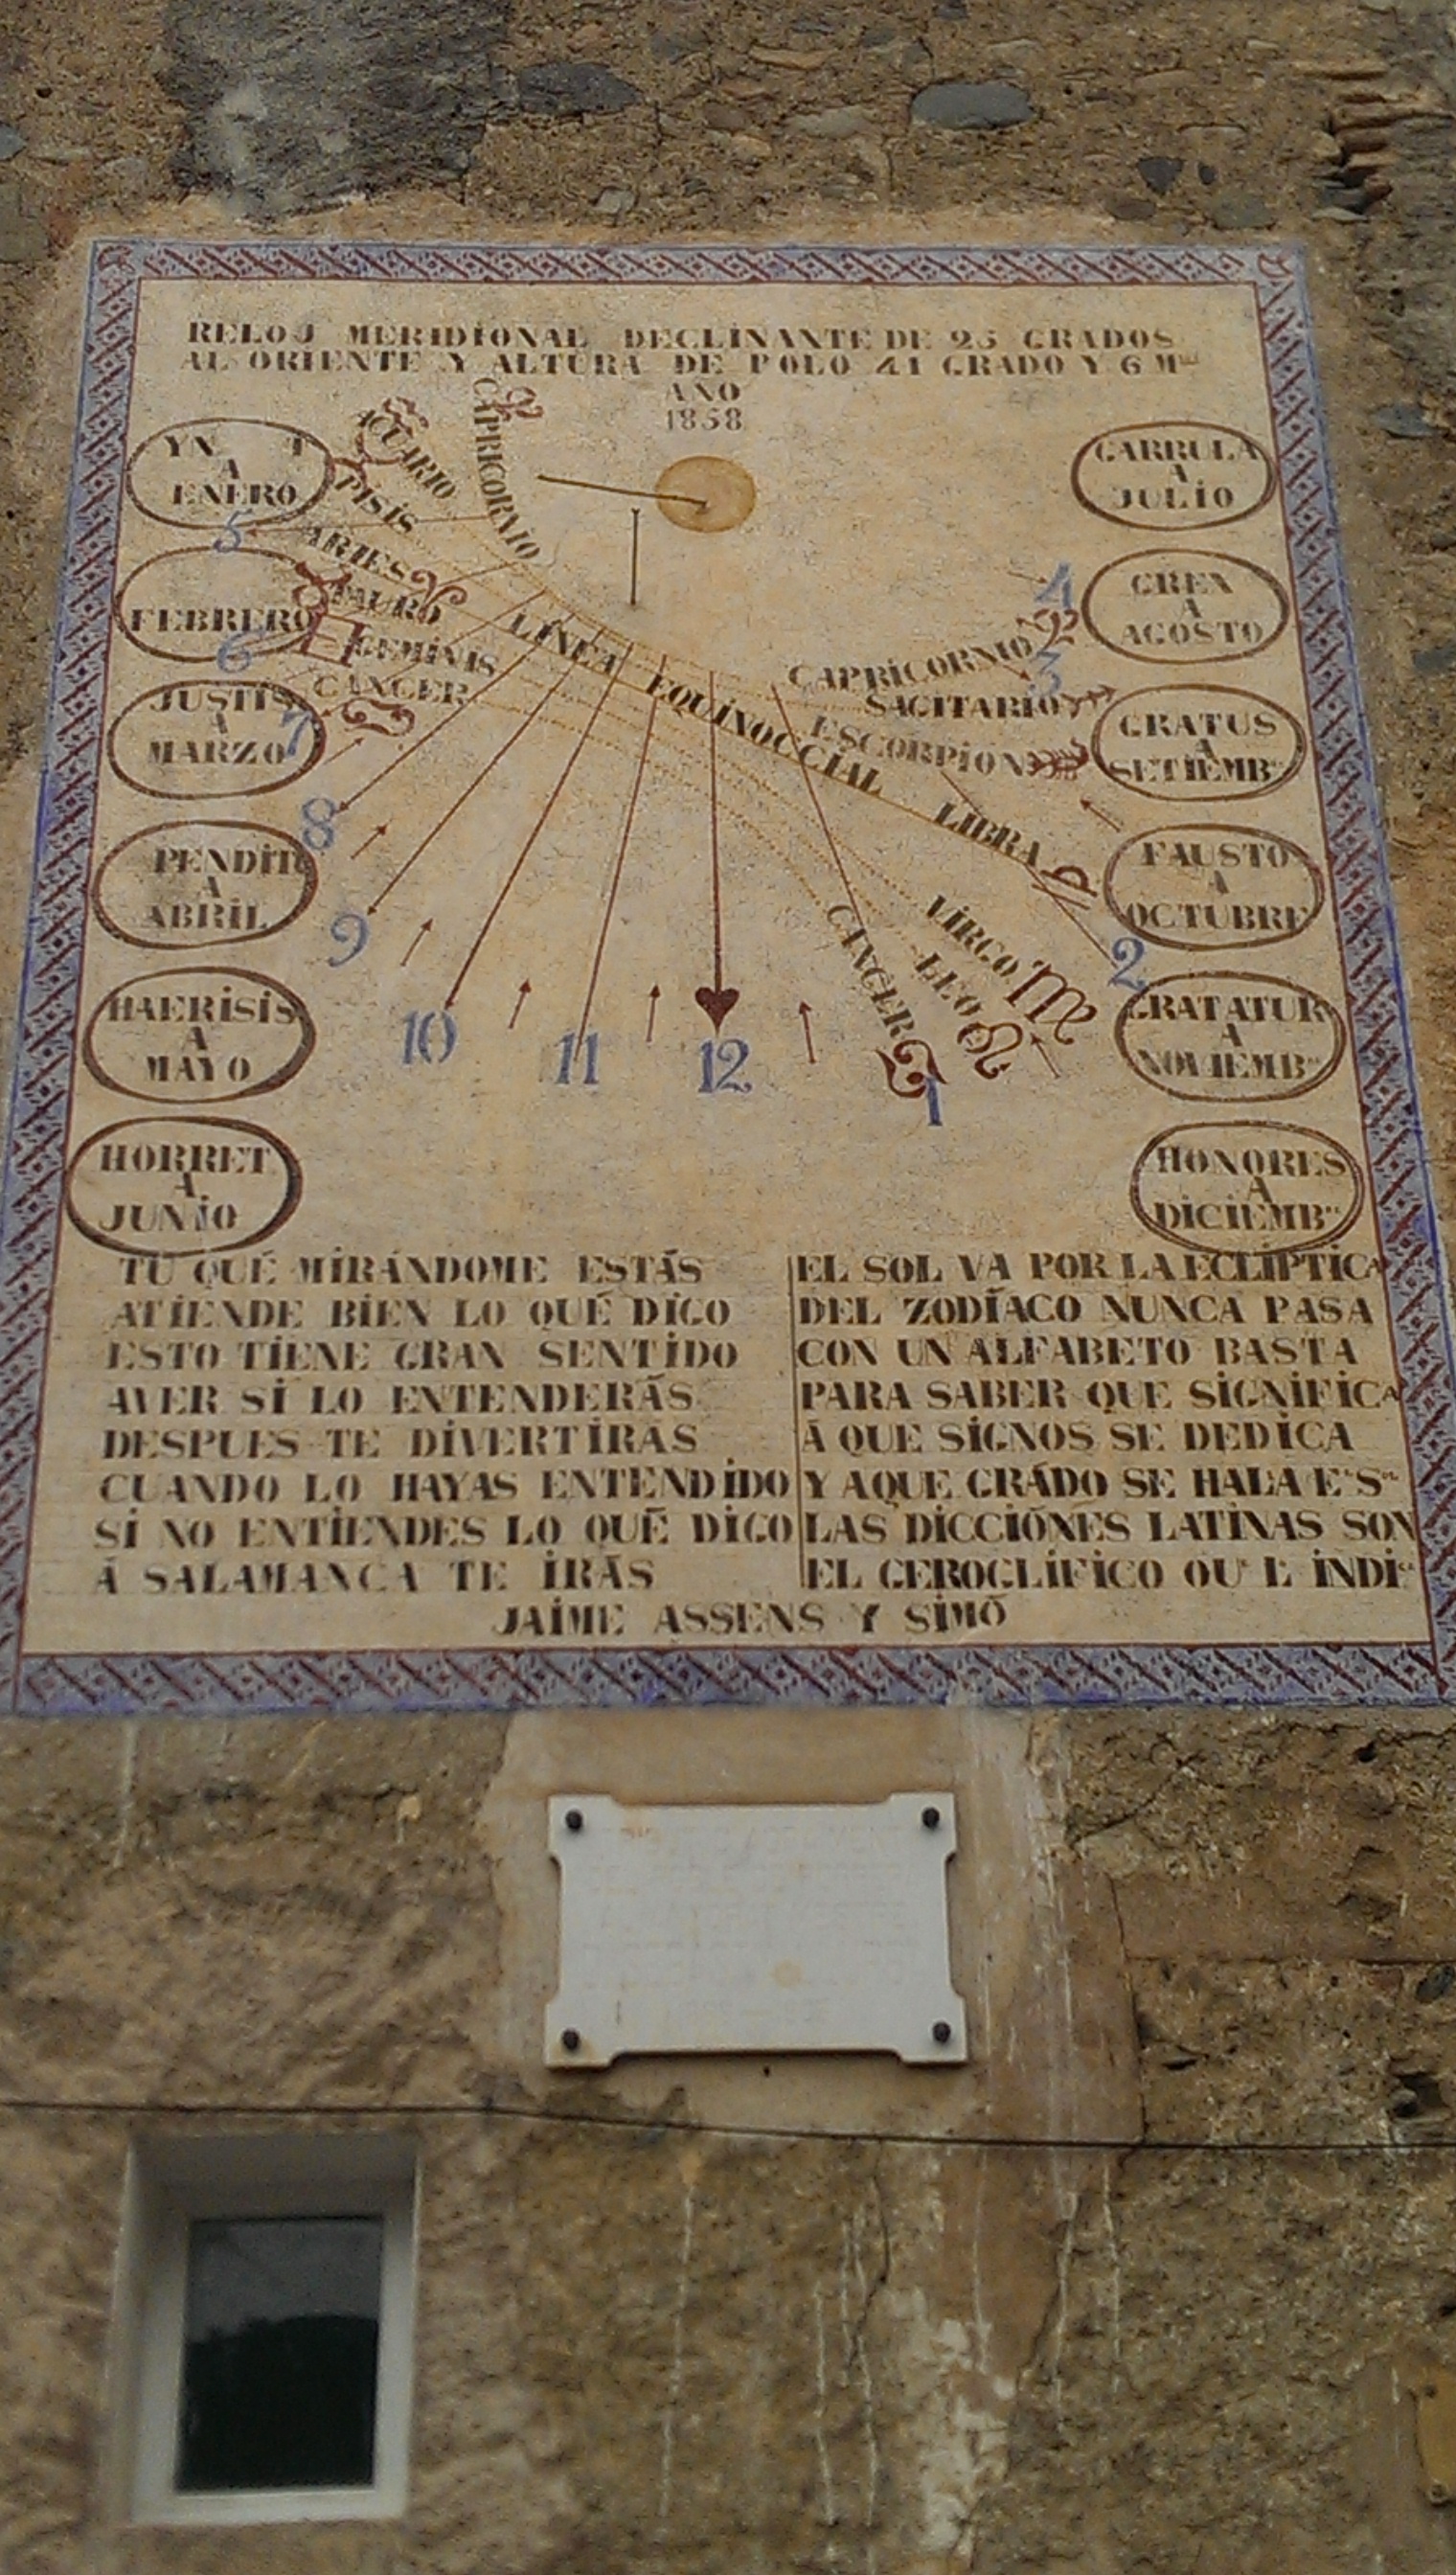 RELOJ MERIDIONAL DECLINANTE DE 25 GRADOS
AL ORIENTE Y ALTURA DE POLO 41 GRADO Y 6 M
AÑO
1858
YN T
A
ENERO
FEBRERO
JUSTIS
A
MARZO
PENDIT
A
ABRIL
HAERISIS
A
MAYO
HORRET
A
JUNIO
ACUARIO
CAPRICORNIO
PISIS
ARIES
TAURO
GEMINIS
CANCER
LÍNEA EQUINOCCIAL
CAPRICORNIO
SAGITARIO
ESCORPION
LIBRA
VIRGO
LEO
CANCER
5
6
7
8
9
10
11
12
1
2
3
4
GARRULA
A
JULIO
GREX
A
AGOSTO
GRATUS
A
SETIEMB
FAUSTO
A
OCTUBRE
GRATATUR
A
NOVIEMB
HONORES
A
DICIEMB
TÚ QUÉ MIRÁNDOME ESTÁS
ATIENDE BIEN LO QUÉ DIGO
ESTO TIENE GRAN SENTIDO
AVER SI LO ENTENDERÁS
DESPUES TE DIVERTIRÁS
CUANDO LO HAYAS ENTENDIDO
SI NO ENTIENDES LO QUÉ DIGO
Á SALAMANCA TE IRÁS
EL SOL VA POR LA ECLÍPTICA
DEL ZODÍACO NUNCA PASA
CON UN ALFABETO BASTA
PARA SABER QUE SIGNIFICA
Á QUE SIGNOS SE DEDICA
Y AQUE GRÁDO SE HALLA E S
LAS DICCIÓNES LATINAS SON
EL GEROGLÍFICO QU L INDI
JAIME ASSENS Y SIMÓ